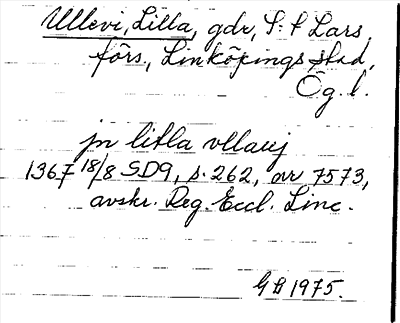 Ullevi, Lilla, gdr, S:t Lars
förs., Linköpings stad,
Ög. l.
jn litla vllauj
1367 18/8 SD9, s. 262, nr 7573,
avskr. Reg. Eccl. Linc.
GB 1975.